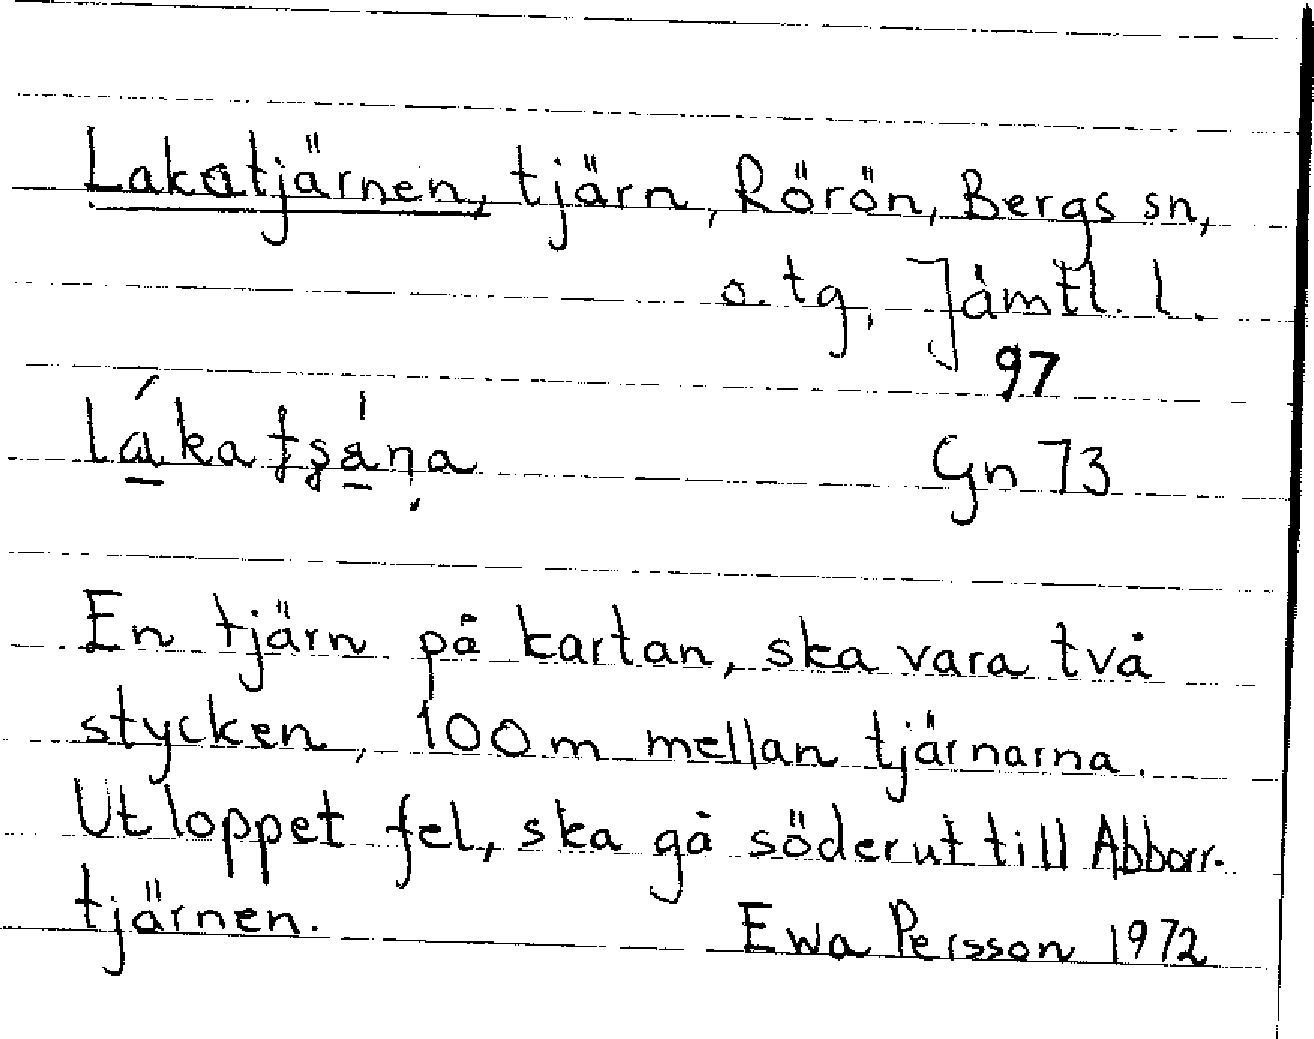 Lakatjärnen, tjärn, Rörön, Bergs sn,
o. tg, Jämtl. l.
97
Gn 73
En tjärn på kartan, ska vara två
stycken, 100 m mellan tjärnarna.
Utloppet fel, ska gå söderut till Abborr-
tjärnen.
Ewa Persson 1972